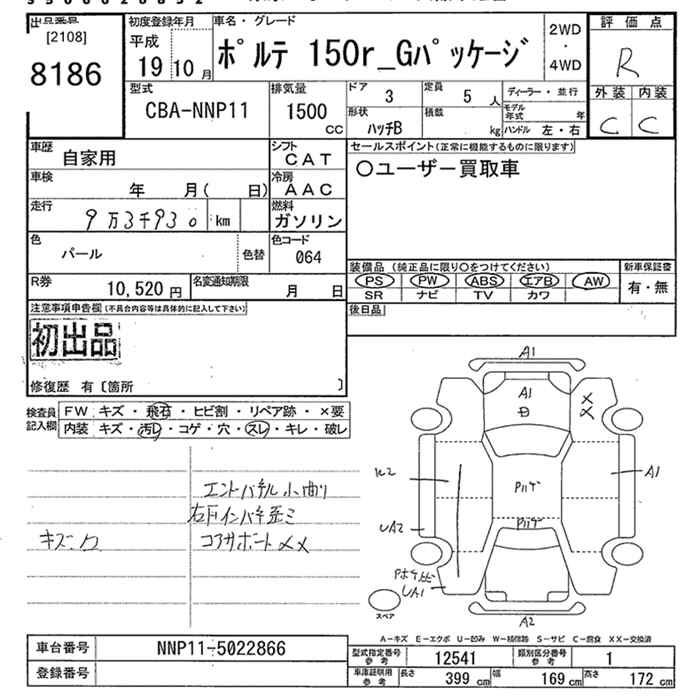 出品業者
[2108]
8186
初度登録年月
平成
19年10月
車名・グレード
ポルテ 150r_Gパッケージ
2WD
・
4WD
評価点
R
外装 内装
C C
型式
CBA-NNP11
排気量
1500
CC
ドア 3
定員 5 人
形状 ハッチB
積載 kg
ディーラー・並行
モデル年式 年
ハンドル 左・右
車歴 自家用
シフト CAT
車検 年 月( 日)
冷房 AAC
走行 9万3千930 km
燃料 ガソリン
色 パール 色替
色コード 064
R券 10,520 円
名変通知期限 月 日
セールスポイント(正常に機能するものに限ります)
○ユーザー買取車
装備品 (純正品に限り○をつけてください)
PS PW ABS エアB AW
SR ナビ TV カワ
新車保証書
有・無
後日品
注意事項申告欄(不具合内容等は具体的に記入して下さい)
初出品
修復歴 有〔箇所 〕
検査員記入欄
FW キズ・飛石・ヒビ割・リペア跡・×要
内装 キズ・汚レ・コゲ・穴・スレ・キレ・破レ
エンドパネル小曲り
右下インパネ歪ミ
キズ・凹
コアサポート××
A1
A1
B
×
×
A1
UA2
UA1
A2
スペア
A-キズ E-エクボ U-凹み W-補修跡 S-サビ C-腐食 XX-交換済
車台番号 NNP11-5022866
登録番号
型式指定番号参考 12541
類別区分番号参考 1
車庫証明用参考 長さ 399 cm 幅 169 cm 高さ 172 cm